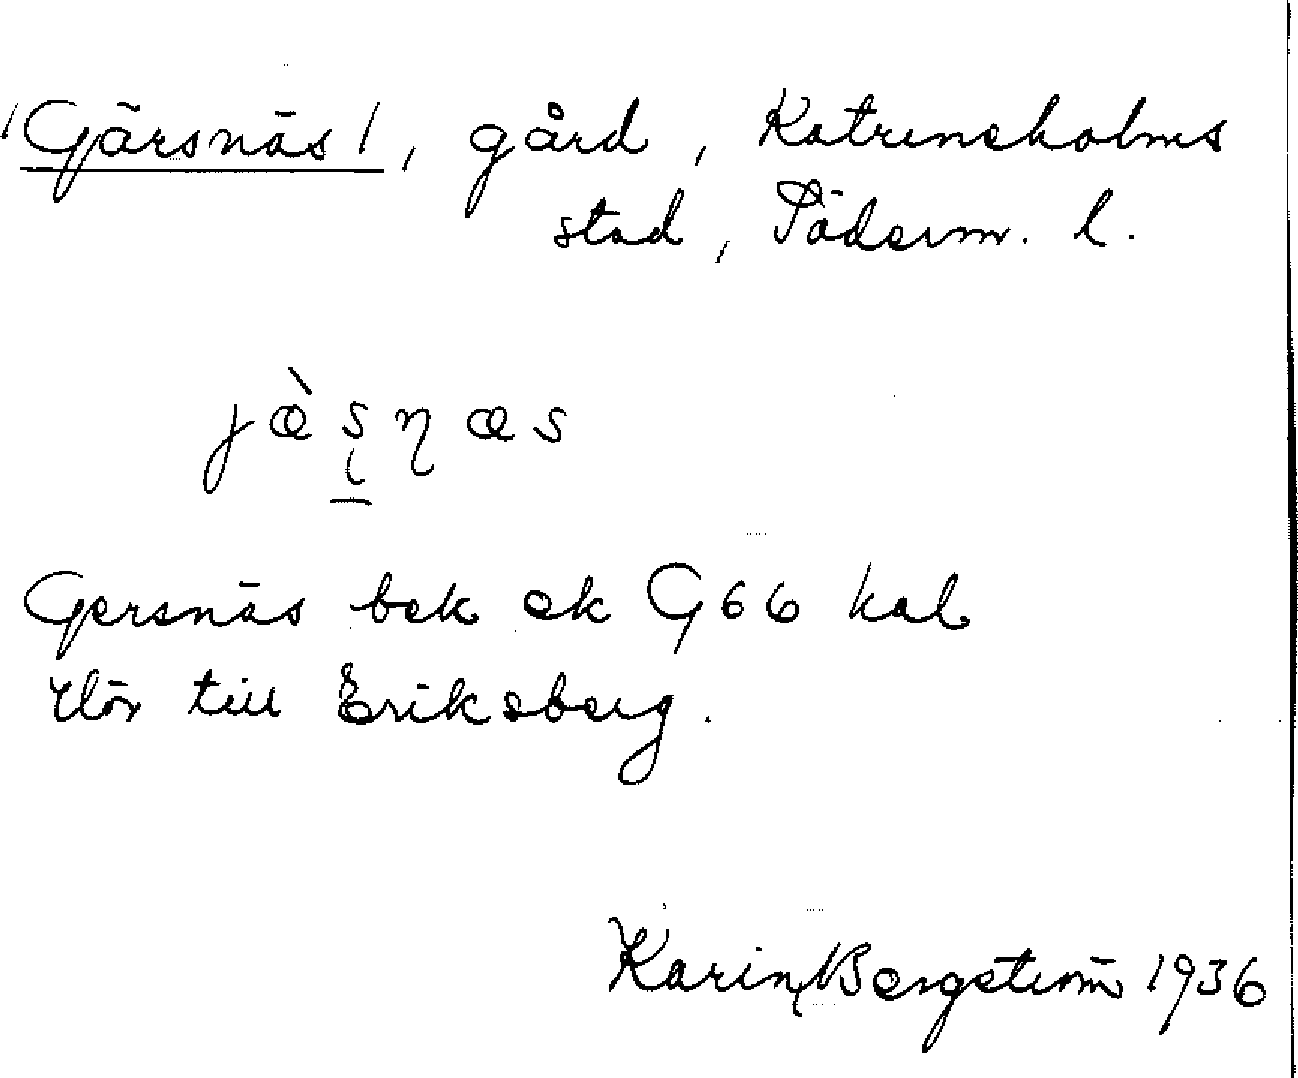 'Gärsnäs', gård, Katrineholms
stad, Söderm. l.
jæ̀ṣṇæs
Gersnäs bek ek G 66 kal
Hör till Eriksberg.
Karin Bergström 1936